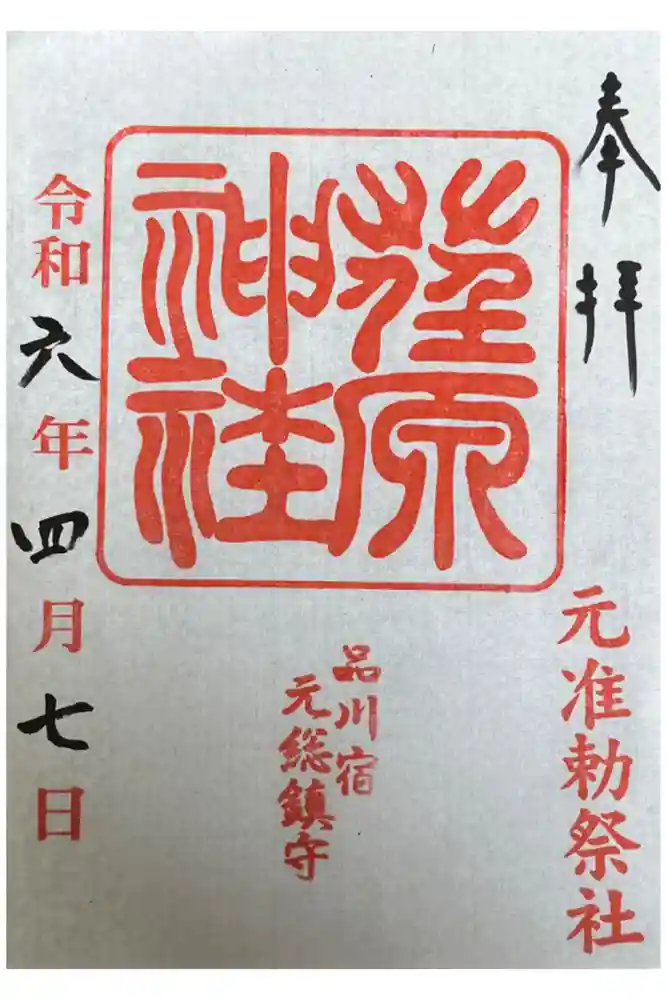 奉拝
元准勅祭社
荏原
神社
品川宿
元総鎮守
令和六年四月七日